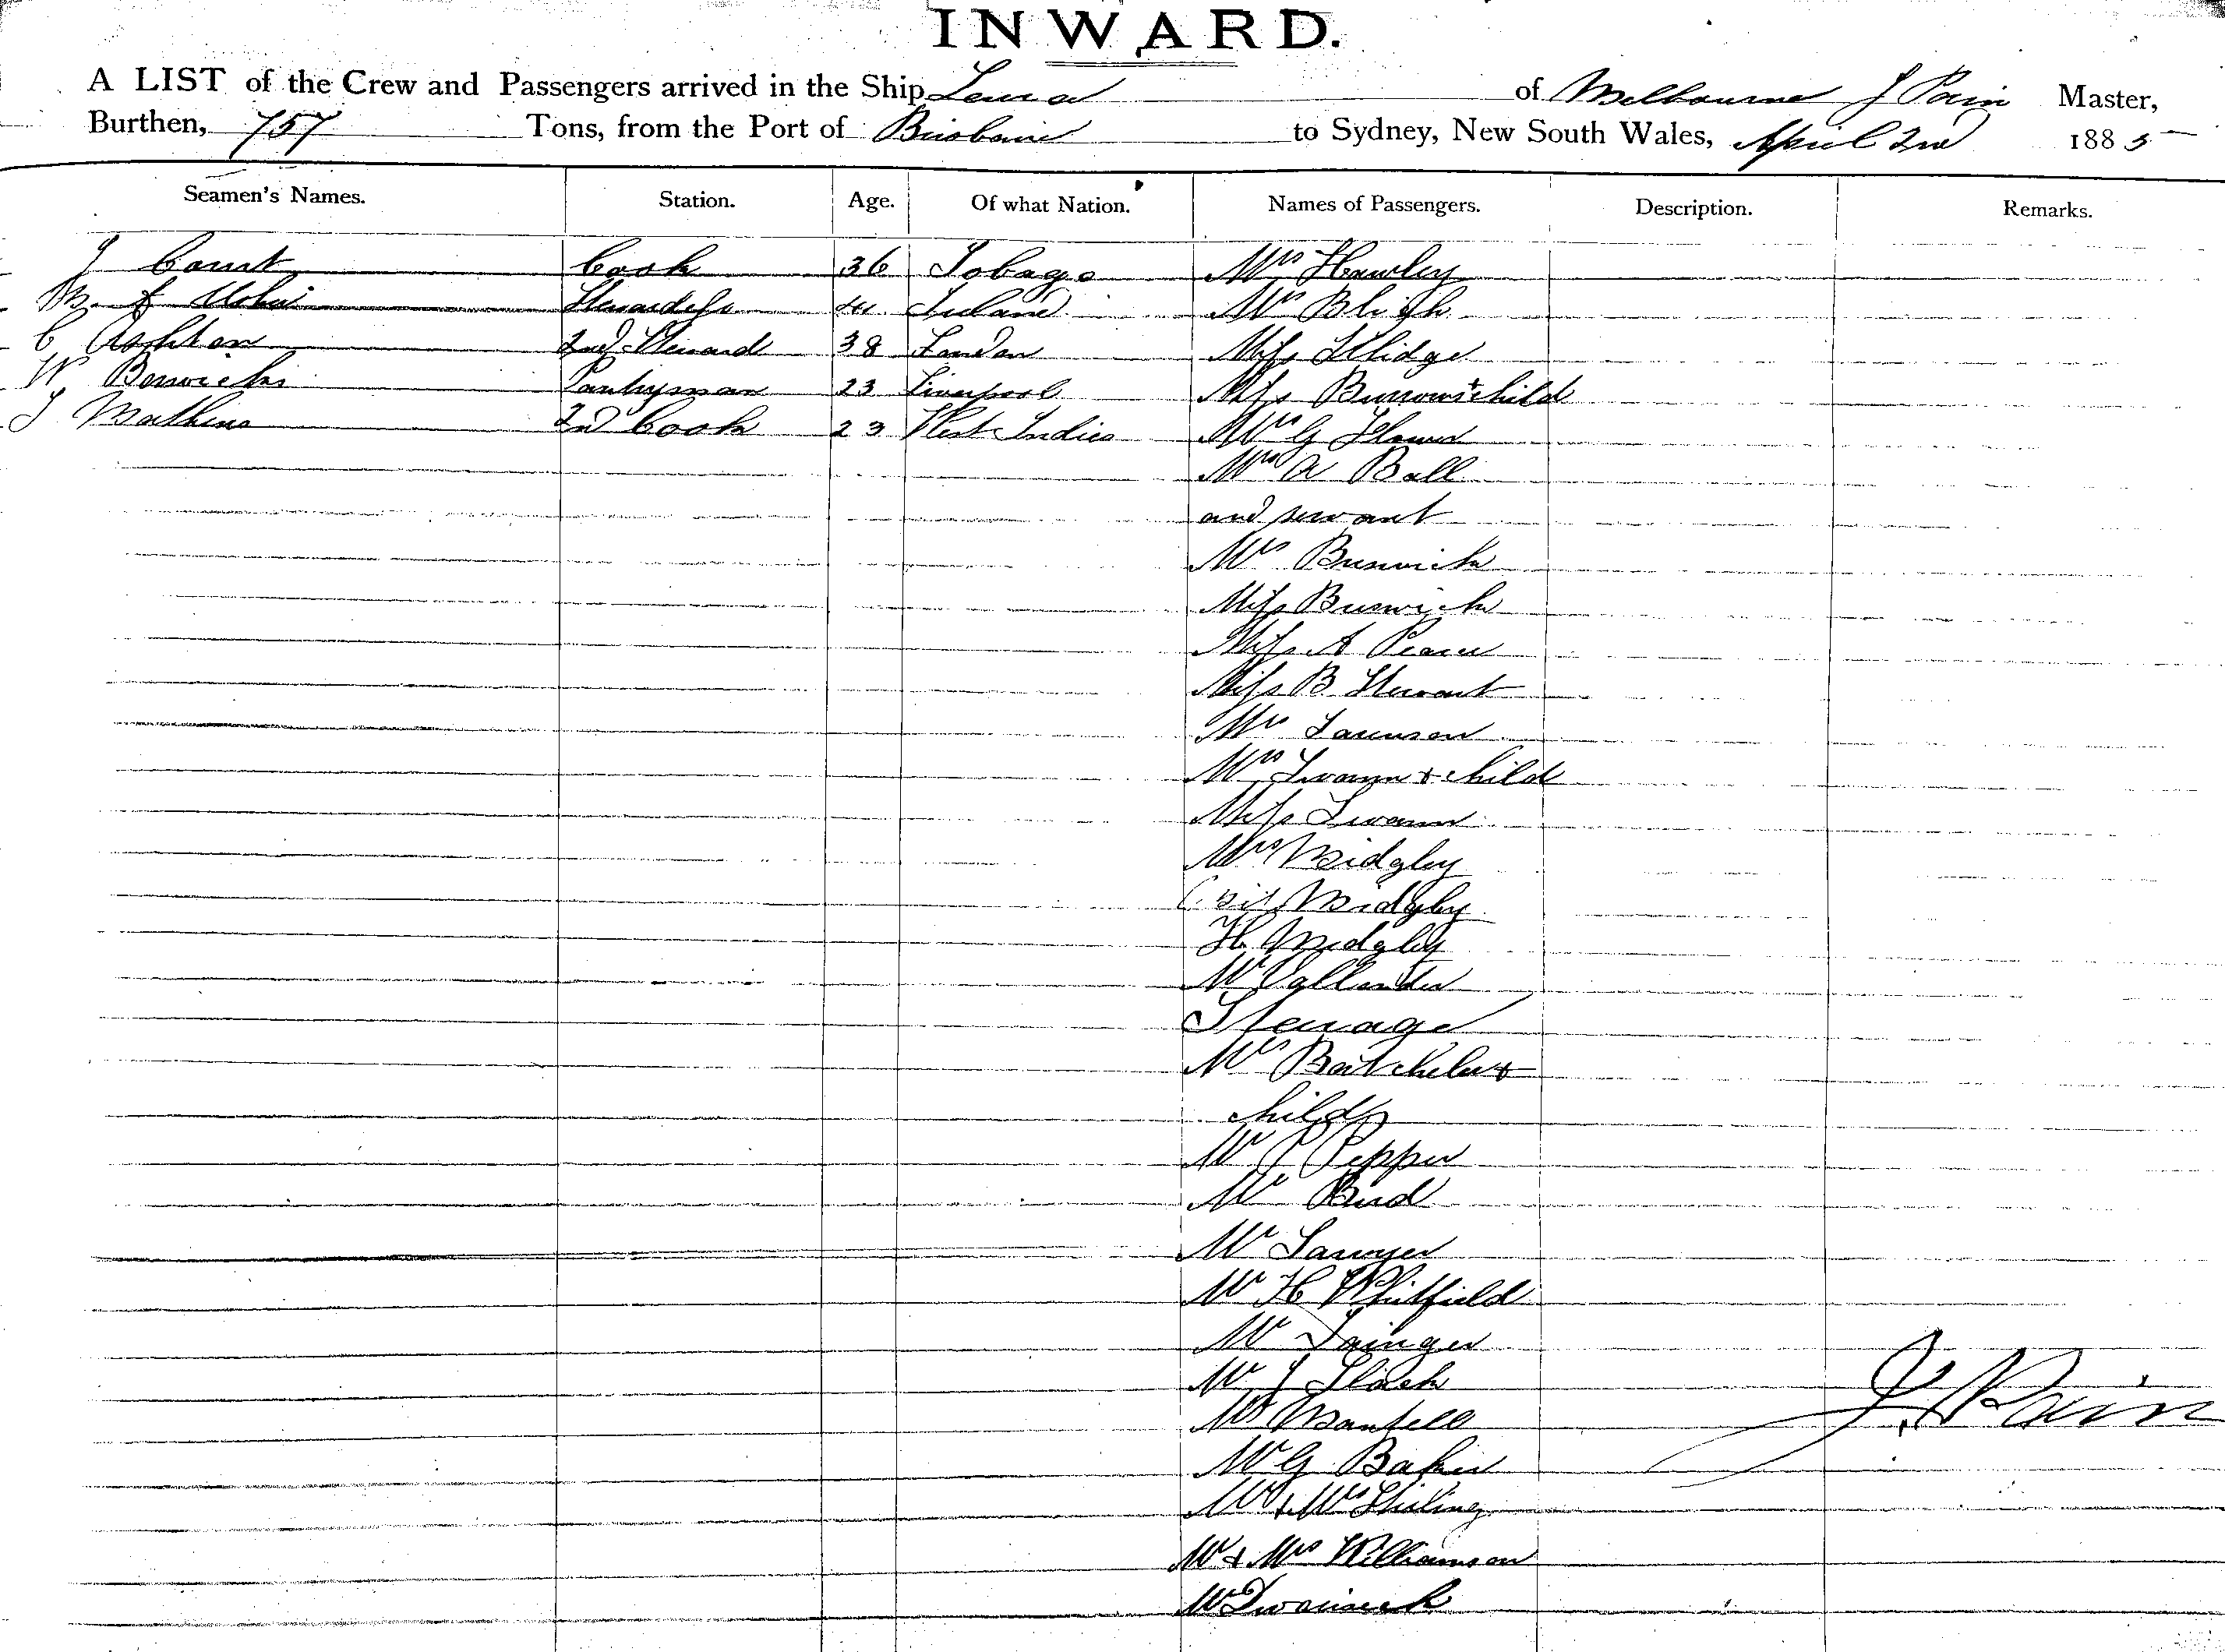 INWARD.
A LIST of the Crew and Passengers arrived in the Ship of Melbourne J Pain Master,
Burthen, 757 Tons, from the Port of Brisbane to Sydney, New South Wales, April 2nd 1885
Seamen's Names. Station. Age. Of what Nation. Names of Passengers. Description. Remarks.
J Court Cook 36 Tobago Mrs Hawley
Stewardess 41 Ireland Mrs Bligh
C Ashton 2nd Steward 38 London Miss Illidge
W Berwick Pantryman 23 Liverpool Miss Burrows & child
J Mathews 2nd Cook 23 West Indies Mrs G
Mrs A Ball
and servant
Mrs Buswick
Miss Buswick
Miss A Pearce
Miss B Stewart
Mr
Mrs Swann & child
Miss Swann
Mrs Midgley
Midgley
H Midgley
Mr
Steerage
Mrs Batchelor &
child
Mr J Pepper
Mr Bird
Mr Sawyer
Mr H Whitfield
Mr
Mr J Slack
Mr Mantell
Mr G Baker
Mr & Mrs
Mr & Mrs Williamson
Mr
J. Pain